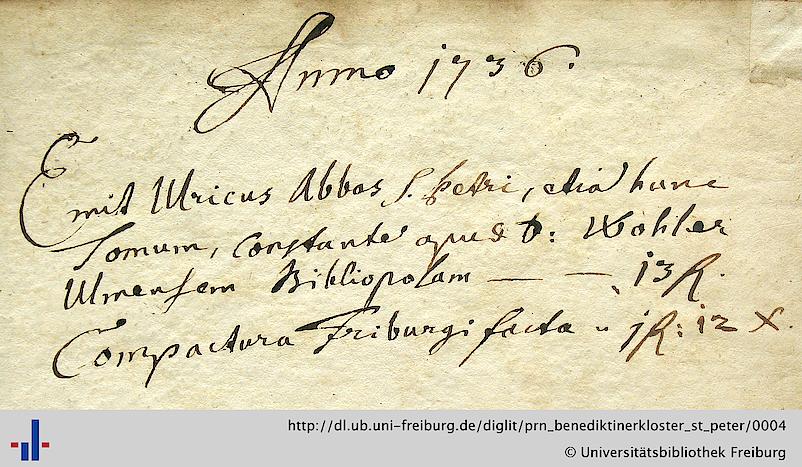 Anno 1736.
Emit Ulricus Abbas S. Petri, etiā hunc
Tomum, constantē apud D: Wohler
Ulmensem Bibliopolam — — 13 fl.
Compactura Friburgi facta " 1 fl: 12 x.
http://dl.ub.uni-freiburg.de/diglit/prn_benediktinerkloster_st_peter/0004
© Universitätsbibliothek Freiburg